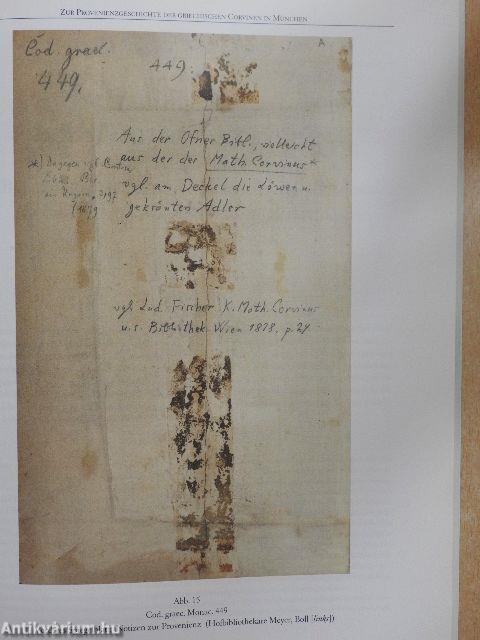 ZUR PROVENIENZGESCHICHTE DER GRIECHISCHEN CORVINEN IN MÜNCHEN
A
Cod. graec.
449.
449.
Aus der Ofner Bibl., vielleicht
aus der der Math. Corvinus*
vgl. am Deckel die Löwen u.
gekrönten Adler
*) Dagegen vgl.
in Ungarn
vgl. Lud. Fischer K. Math. Corvinus
u. s. Bibliothek Wien 1878, p. 24
Abb. 15
Cod. graec. Monac. 449
Notizen zur Provenienz (Hofbibliothekare Meyer, Boll [links])
Antikvárium.hu